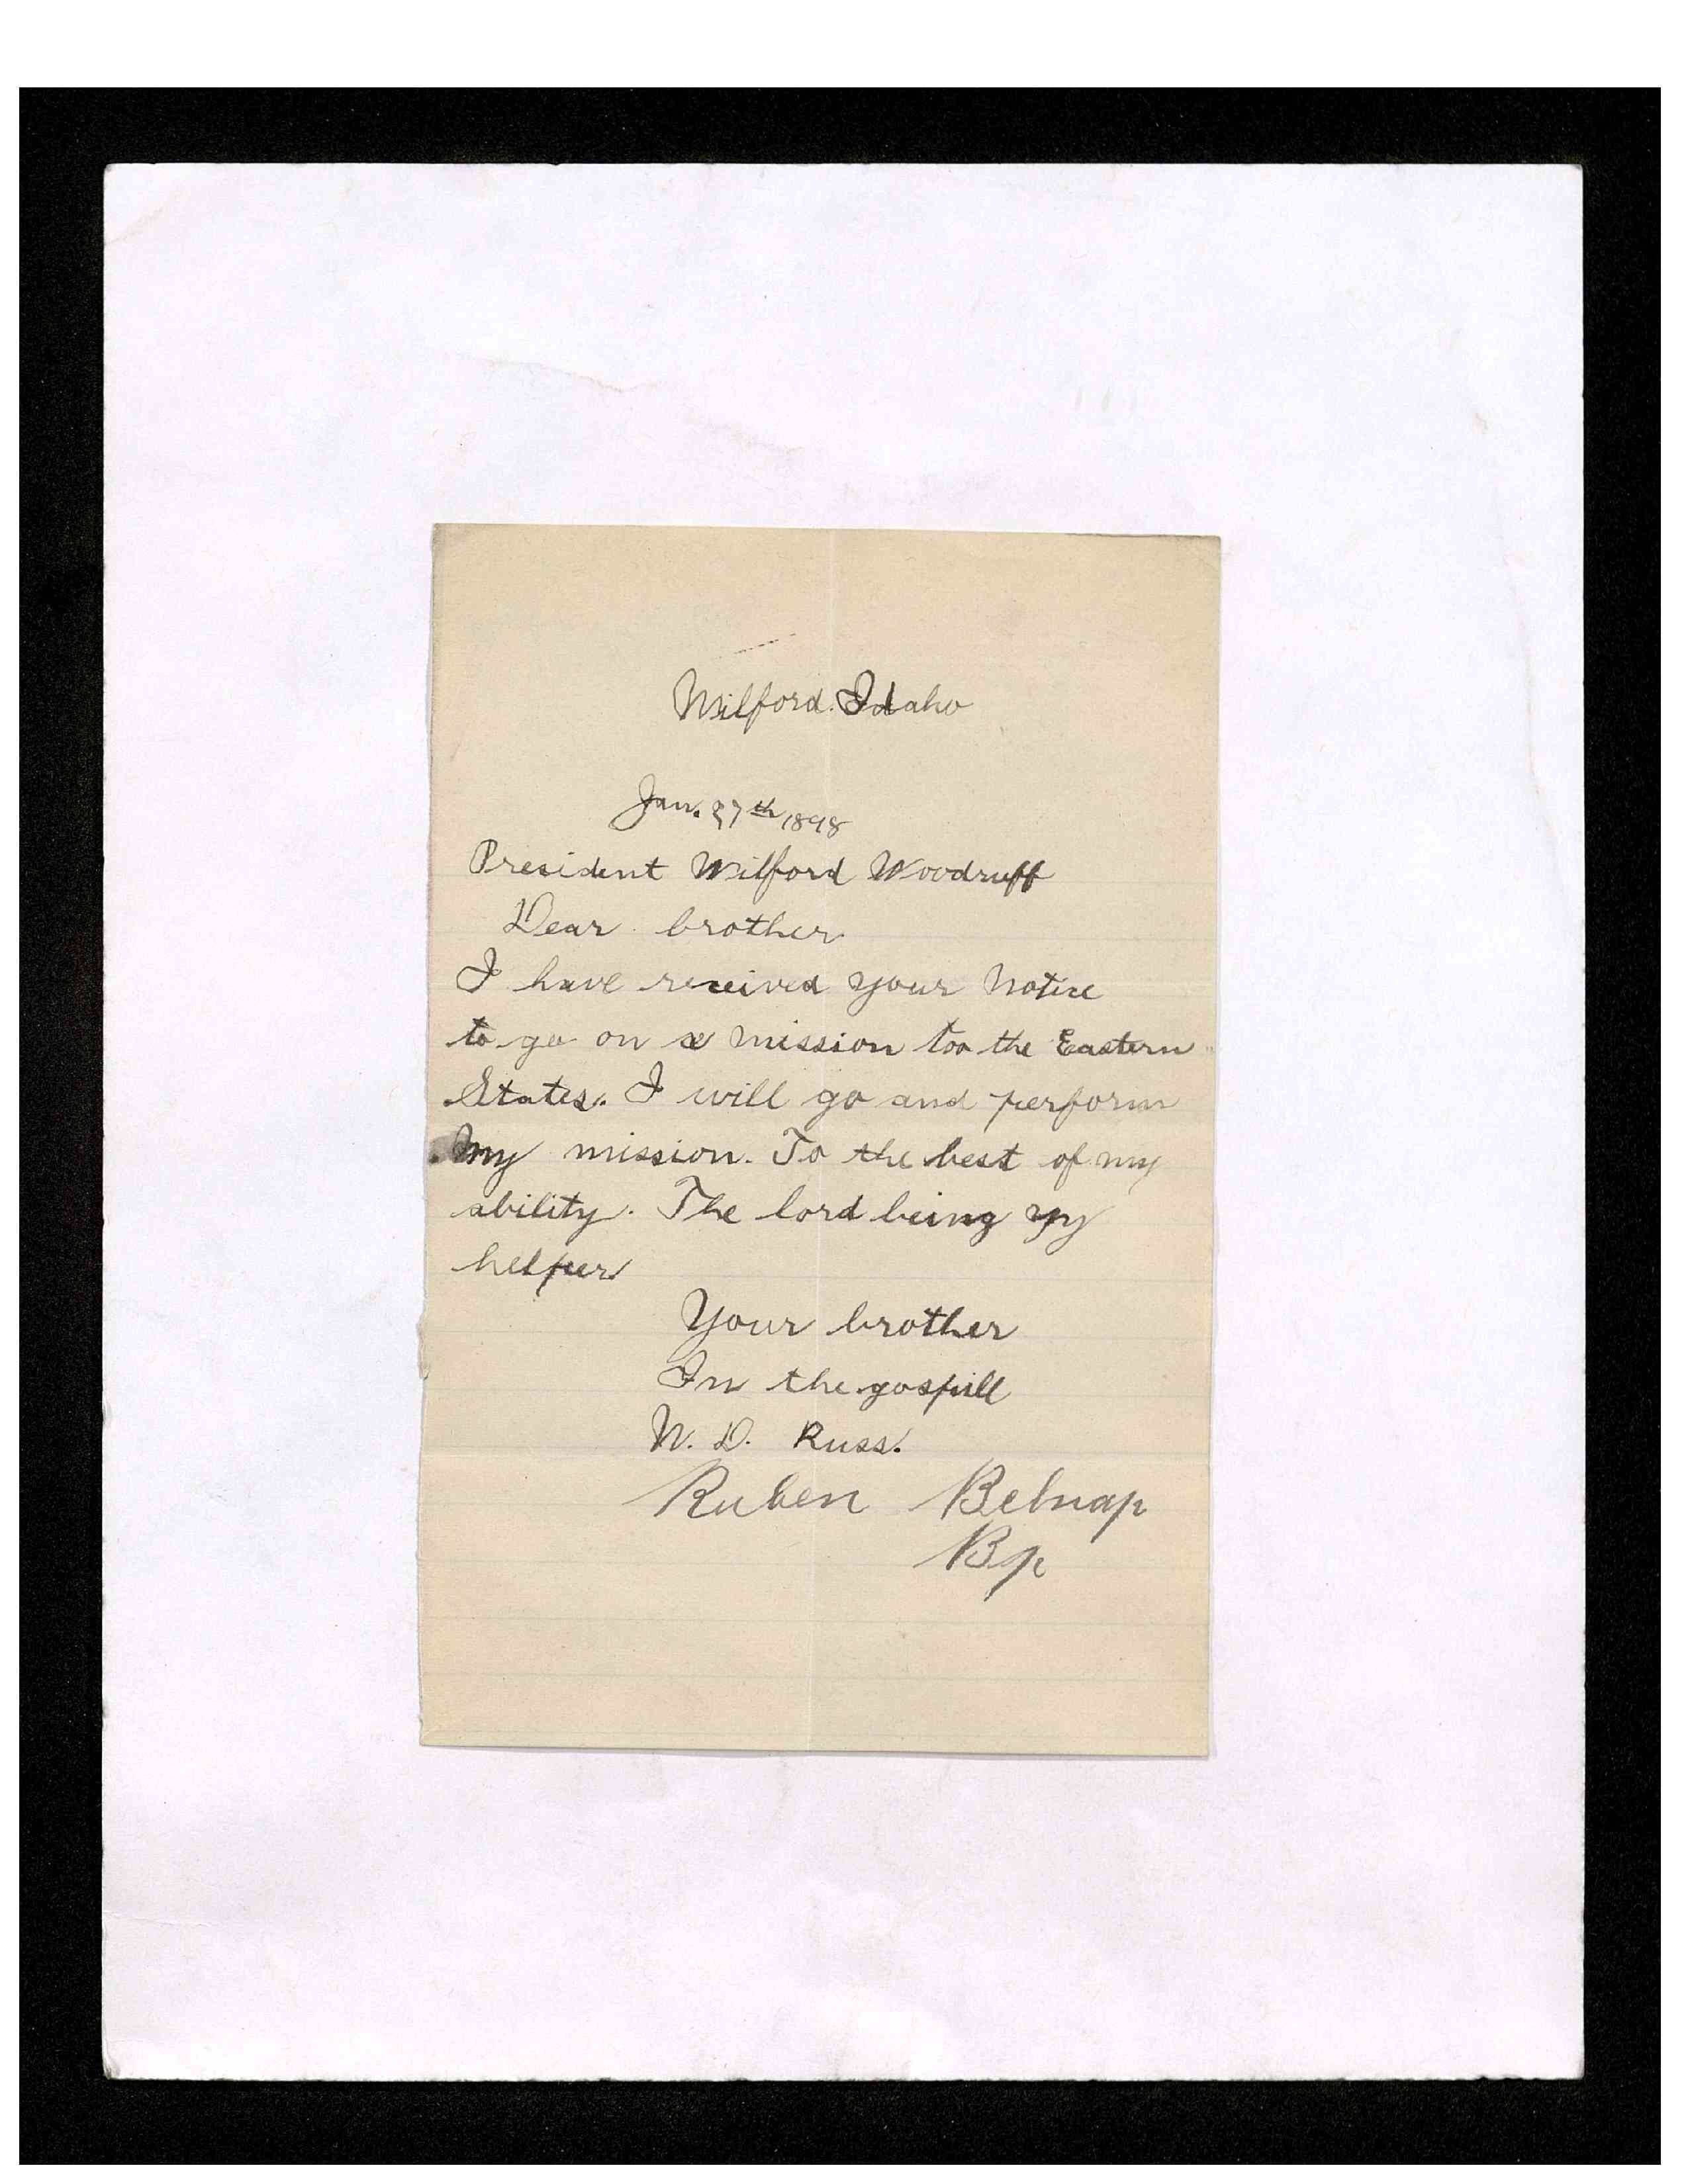 Wilford. Idaho
Jan. 27th 1898
President Wilford Woodruff
Dear brother
I have received your Notice
to go on a mission too the Eastern
States. I will go and perform
My mission. To the best of my
ability. The lord being my
helper
Your brother
In the gospill
W. D. Russ.
Ruben Belnap
Bp